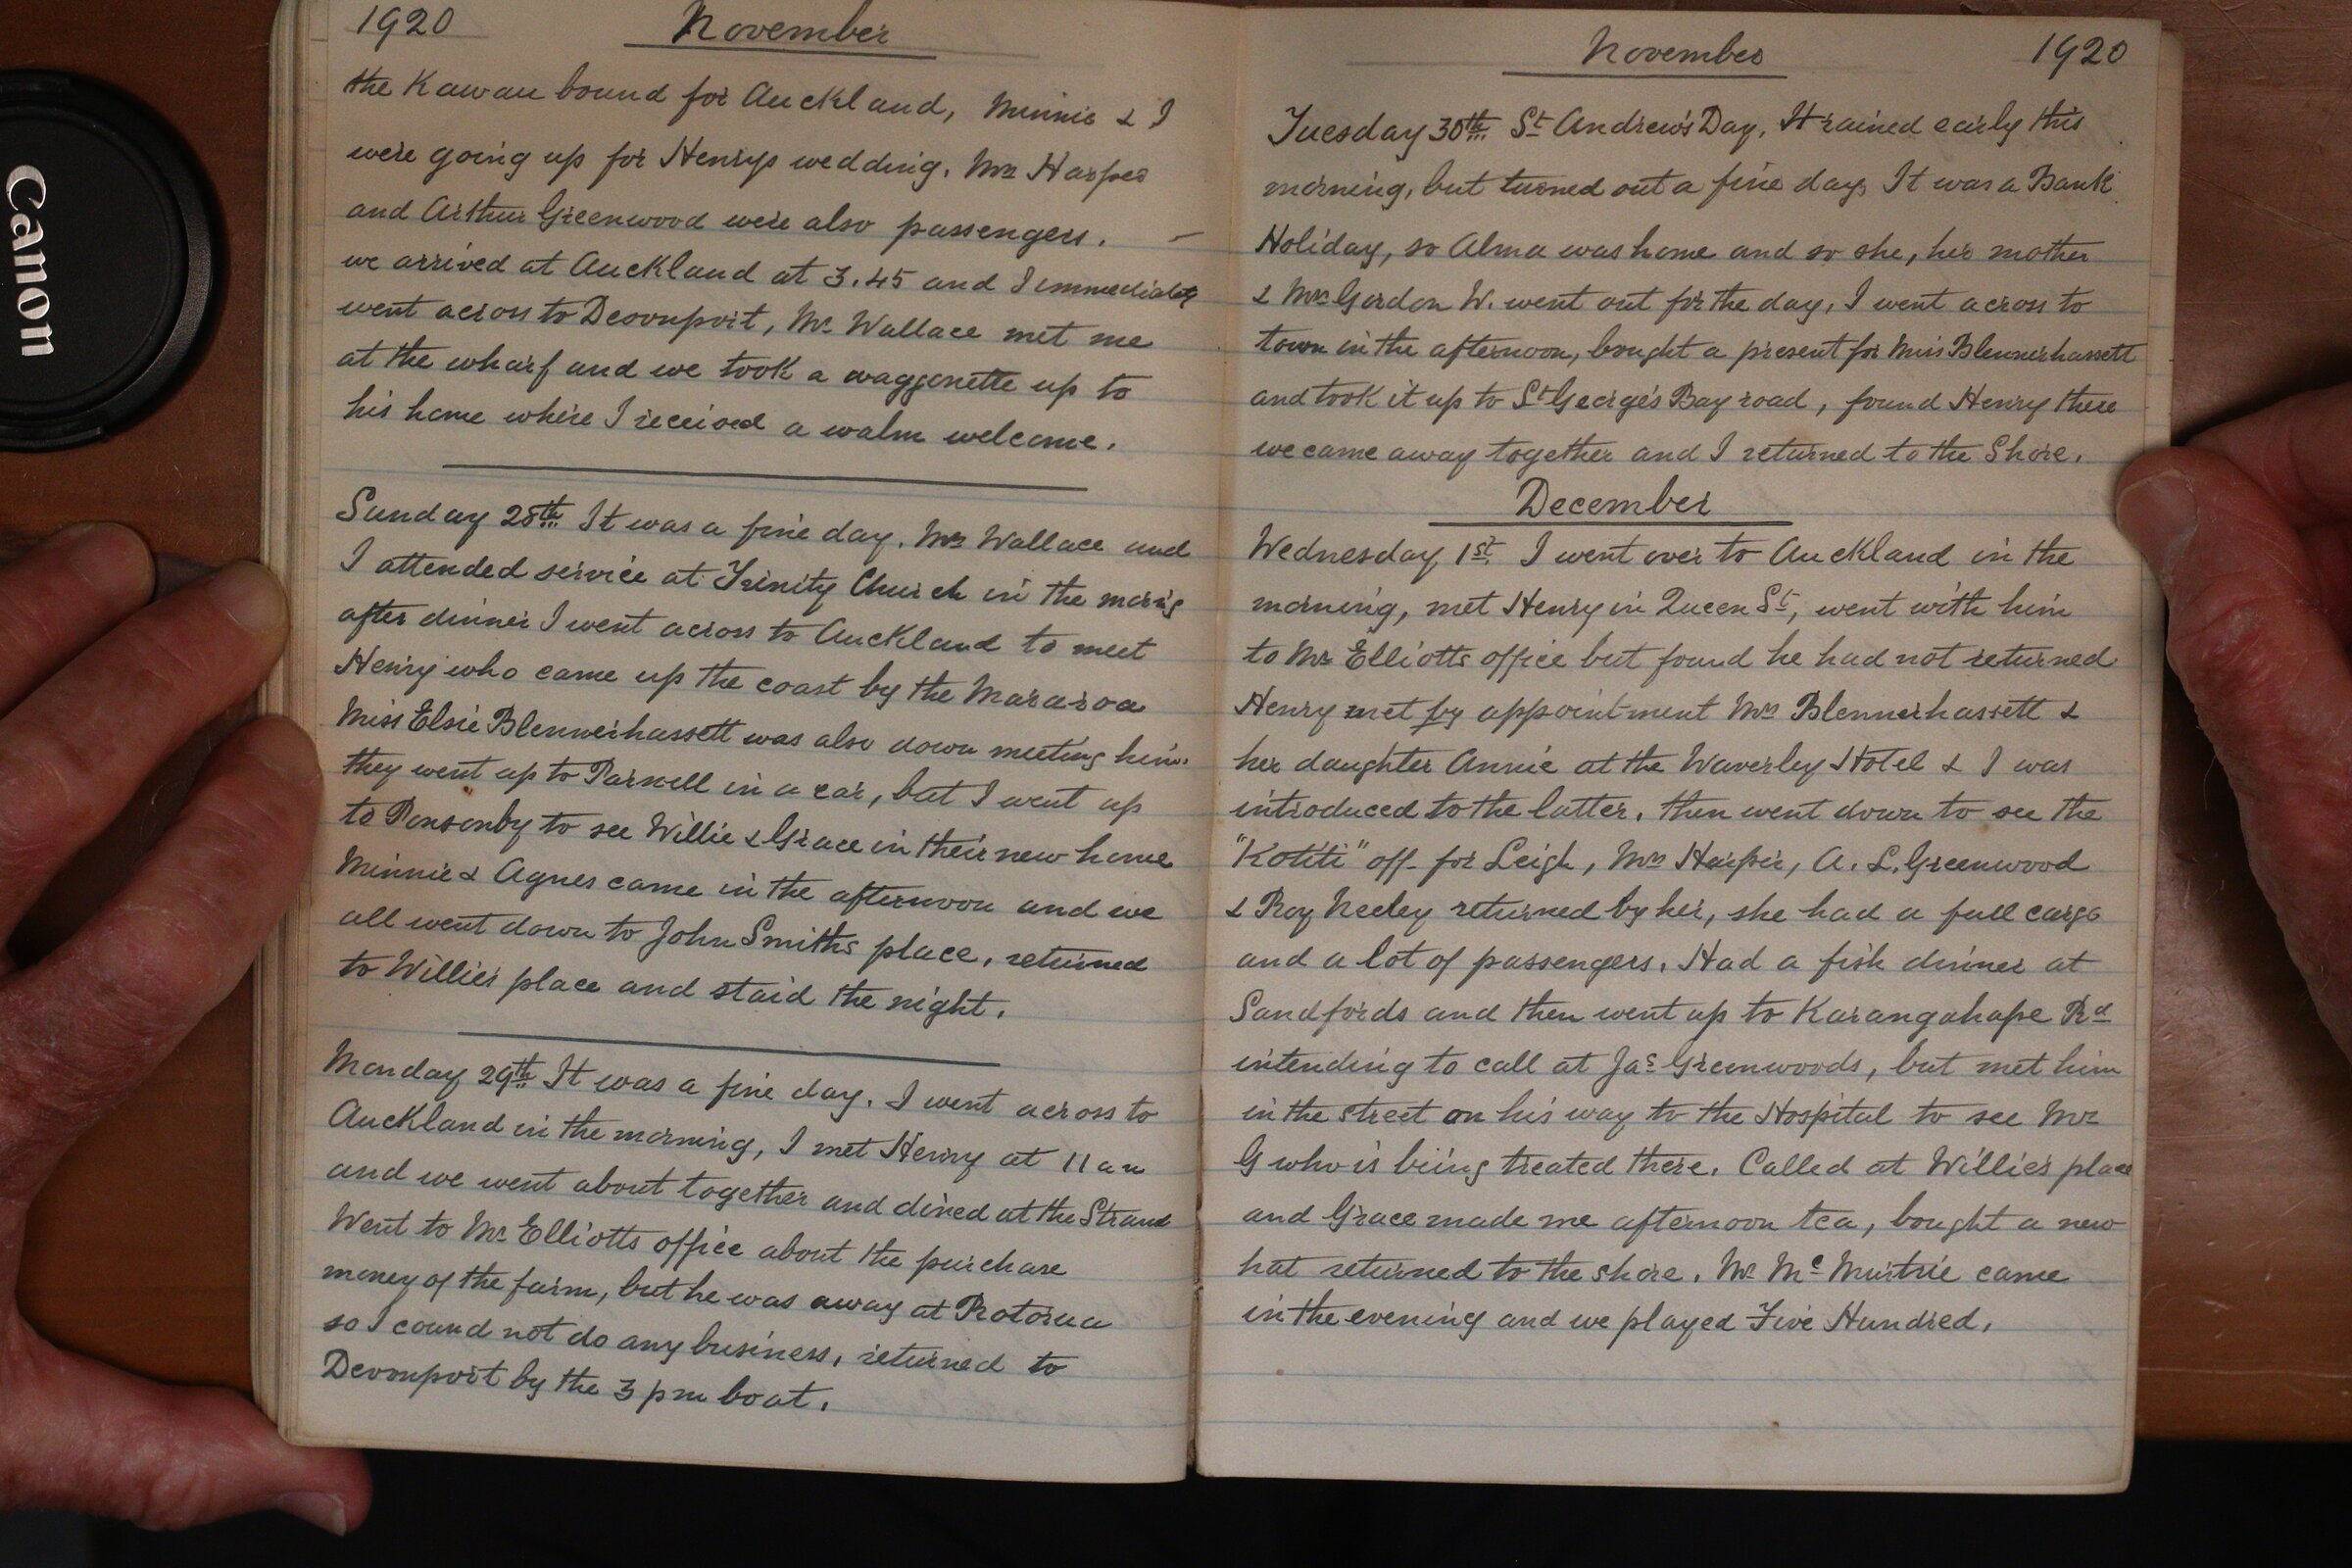 Canon
1920 November
the Kawau bound for Auckland, Minnie & I
were going up for Henrys wedding. Mrs Harper
and Arthur Greenwood were also passengers. —
we arrived at Auckland at 3.45 and I immediately
went across to Devonport, Mr. Wallace met me
at the wharf and we took a waggonette up to
his home where I received a walm welcome.
Sunday 28th. It was a fine day. Mrs Wallace and
I attended service at Trinity Church in the morng
after dinner I went across to Auckland to meet
Henry who came up the coast by the Mararoa
Miss Elsie Blennerhassett was also down meeting him.
they went up to Parnell in a car, but I went up
to Ponsonby to see Willie & Grace in their new home
Minnie & Agnes came in the afternoon and we
all went down to John Smiths place, returned
to Willies place and staid the night.
Monday 29th It was a fine day. I went across to
Auckland in the morning, I met Henry at 11 am
and we went about together and dined at the Strand
Went to Mr. Elliotts office about the purchase
money of the farm, but he was away at Rotorua
so I cound not do any business, returned to
Devonport by the 3 pm boat.
November 1920
Tuesday 30th. St Andrew's Day. It rained early this
morning, but turned out a fine day. It was a Bank
Holiday, so Alma was home and so she, her mother
& Mrs Gordon W. went out for the day, I went across to
town in the afternoon, bought a present for Miss Blennerhassett
and took it up to St George's Bay road, found Henry there
we came away together and I returned to the Shore.
December
Wednesday 1st. I went over to Auckland in the
morning, met Henry in Queen St, went with him
to Mr Elliotts office but found he had not returned
Henry met by appointment Mrs Blennerhassett &
her daughter Annie at the Waverley Hotel & I was
introduced to the latter, then went down to see the
"Kotiti" off for Leigh, Mrs Harper, A. L. Greenwood
& Roy Neeley returned by her, she had a full cargo
and a lot of passengers. Had a fish dinner at
Sandfords and then went up to Karangahape Rd
intending to call at Jas Greenwoods, but met him
in the street on his way to the Hospital to see Mrs
G who is being treated there. Called at Willie's place
and Grace made me afternoon tea, bought a new
hat returned to the shore. Mr. Mc Murtrie came
in the evening and we played Five Hundred.